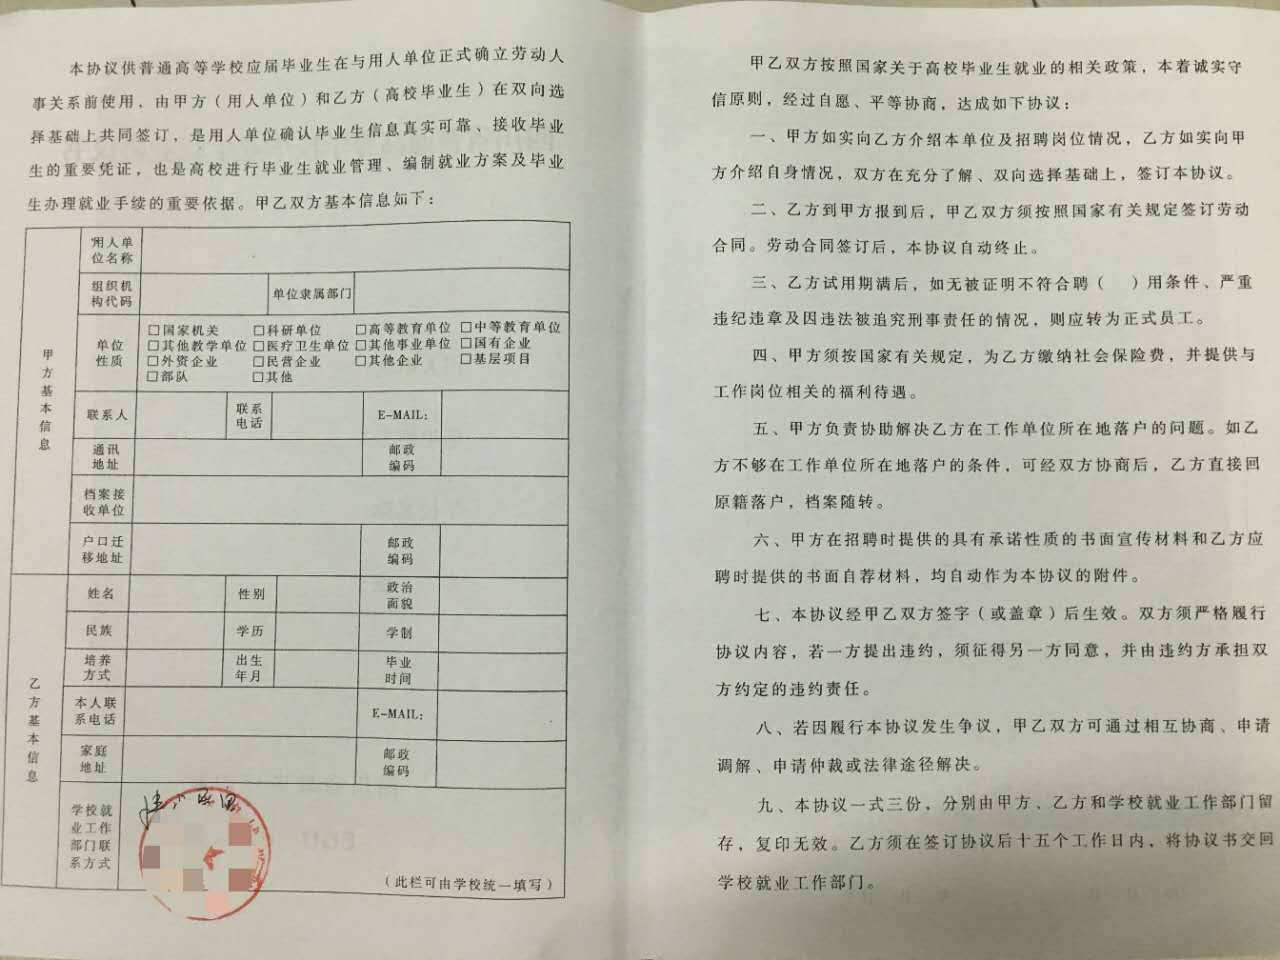 本协议供普通高等学校应届毕业生在与用人单位正式确立劳动人
事关系前使用，由甲方（用人单位）和乙方（高校毕业生）在双向选
择基础上共同签订，是用人单位确认毕业生信息真实可靠、接收毕业
生的重要凭证，也是高校进行毕业生就业管理、编制就业方案及毕业
生办理就业手续的重要依据。甲乙双方基本信息如下：
甲方基本信息
用人单
位名称
组织机
构代码
单位隶属部门
单位
性质
□国家机关 □科研单位 □高等教育单位 □中等教育单位
□其他教学单位 □医疗卫生单位 □其他事业单位 □国有企业
□外资企业 □民营企业 □其他企业 □基层项目
□部队 □其他
联系人
联系
电话
E-MAIL：
通讯
地址
邮政
编码
档案接
收单位
户口迁
移地址
邮政
编码
乙方基本信息
姓名
性别
政治
面貌
民族
学历
学制
培养
方式
出生
年月
毕业
时间
本人联
系电话
E-MAIL：
家庭
地址
邮政
编码
学校就
业工作
部门联
系方式
（此栏可由学校统一填写）
甲乙双方按照国家关于高校毕业生就业的相关政策，本着诚实守
信原则，经过自愿、平等协商，达成如下协议：
一、甲方如实向乙方介绍本单位及招聘岗位情况，乙方如实向甲
方介绍自身情况，双方在充分了解、双向选择基础上，签订本协议。
二、乙方到甲方报到后，甲乙双方须按照国家有关规定签订劳动
合同。劳动合同签订后，本协议自动终止。
三、乙方试用期满后，如无被证明不符合聘（ ）用条件、严重
违纪违章及因违法被追究刑事责任的情况，则应转为正式员工。
四、甲方须按国家有关规定，为乙方缴纳社会保险费，并提供与
工作岗位相关的福利待遇。
五、甲方负责协助解决乙方在工作单位所在地落户的问题。如乙
方不够在工作单位所在地落户的条件，可经双方协商后，乙方直接回
原籍落户，档案随转。
六、甲方在招聘时提供的具有承诺性质的书面宣传材料和乙方应
聘时提供的书面自荐材料，均自动作为本协议的附件。
七、本协议经甲乙双方签字（或盖章）后生效。双方须严格履行
协议内容，若一方提出违约，须征得另一方同意，并由违约方承担双
方约定的违约责任。
八、若因履行本协议发生争议，甲乙双方可通过相互协商、申请
调解、申请仲裁或法律途径解决。
九、本协议一式三份，分别由甲方、乙方和学校就业工作部门留
存，复印无效。乙方须在签订协议后十五个工作日内，将协议书交回
学校就业工作部门。